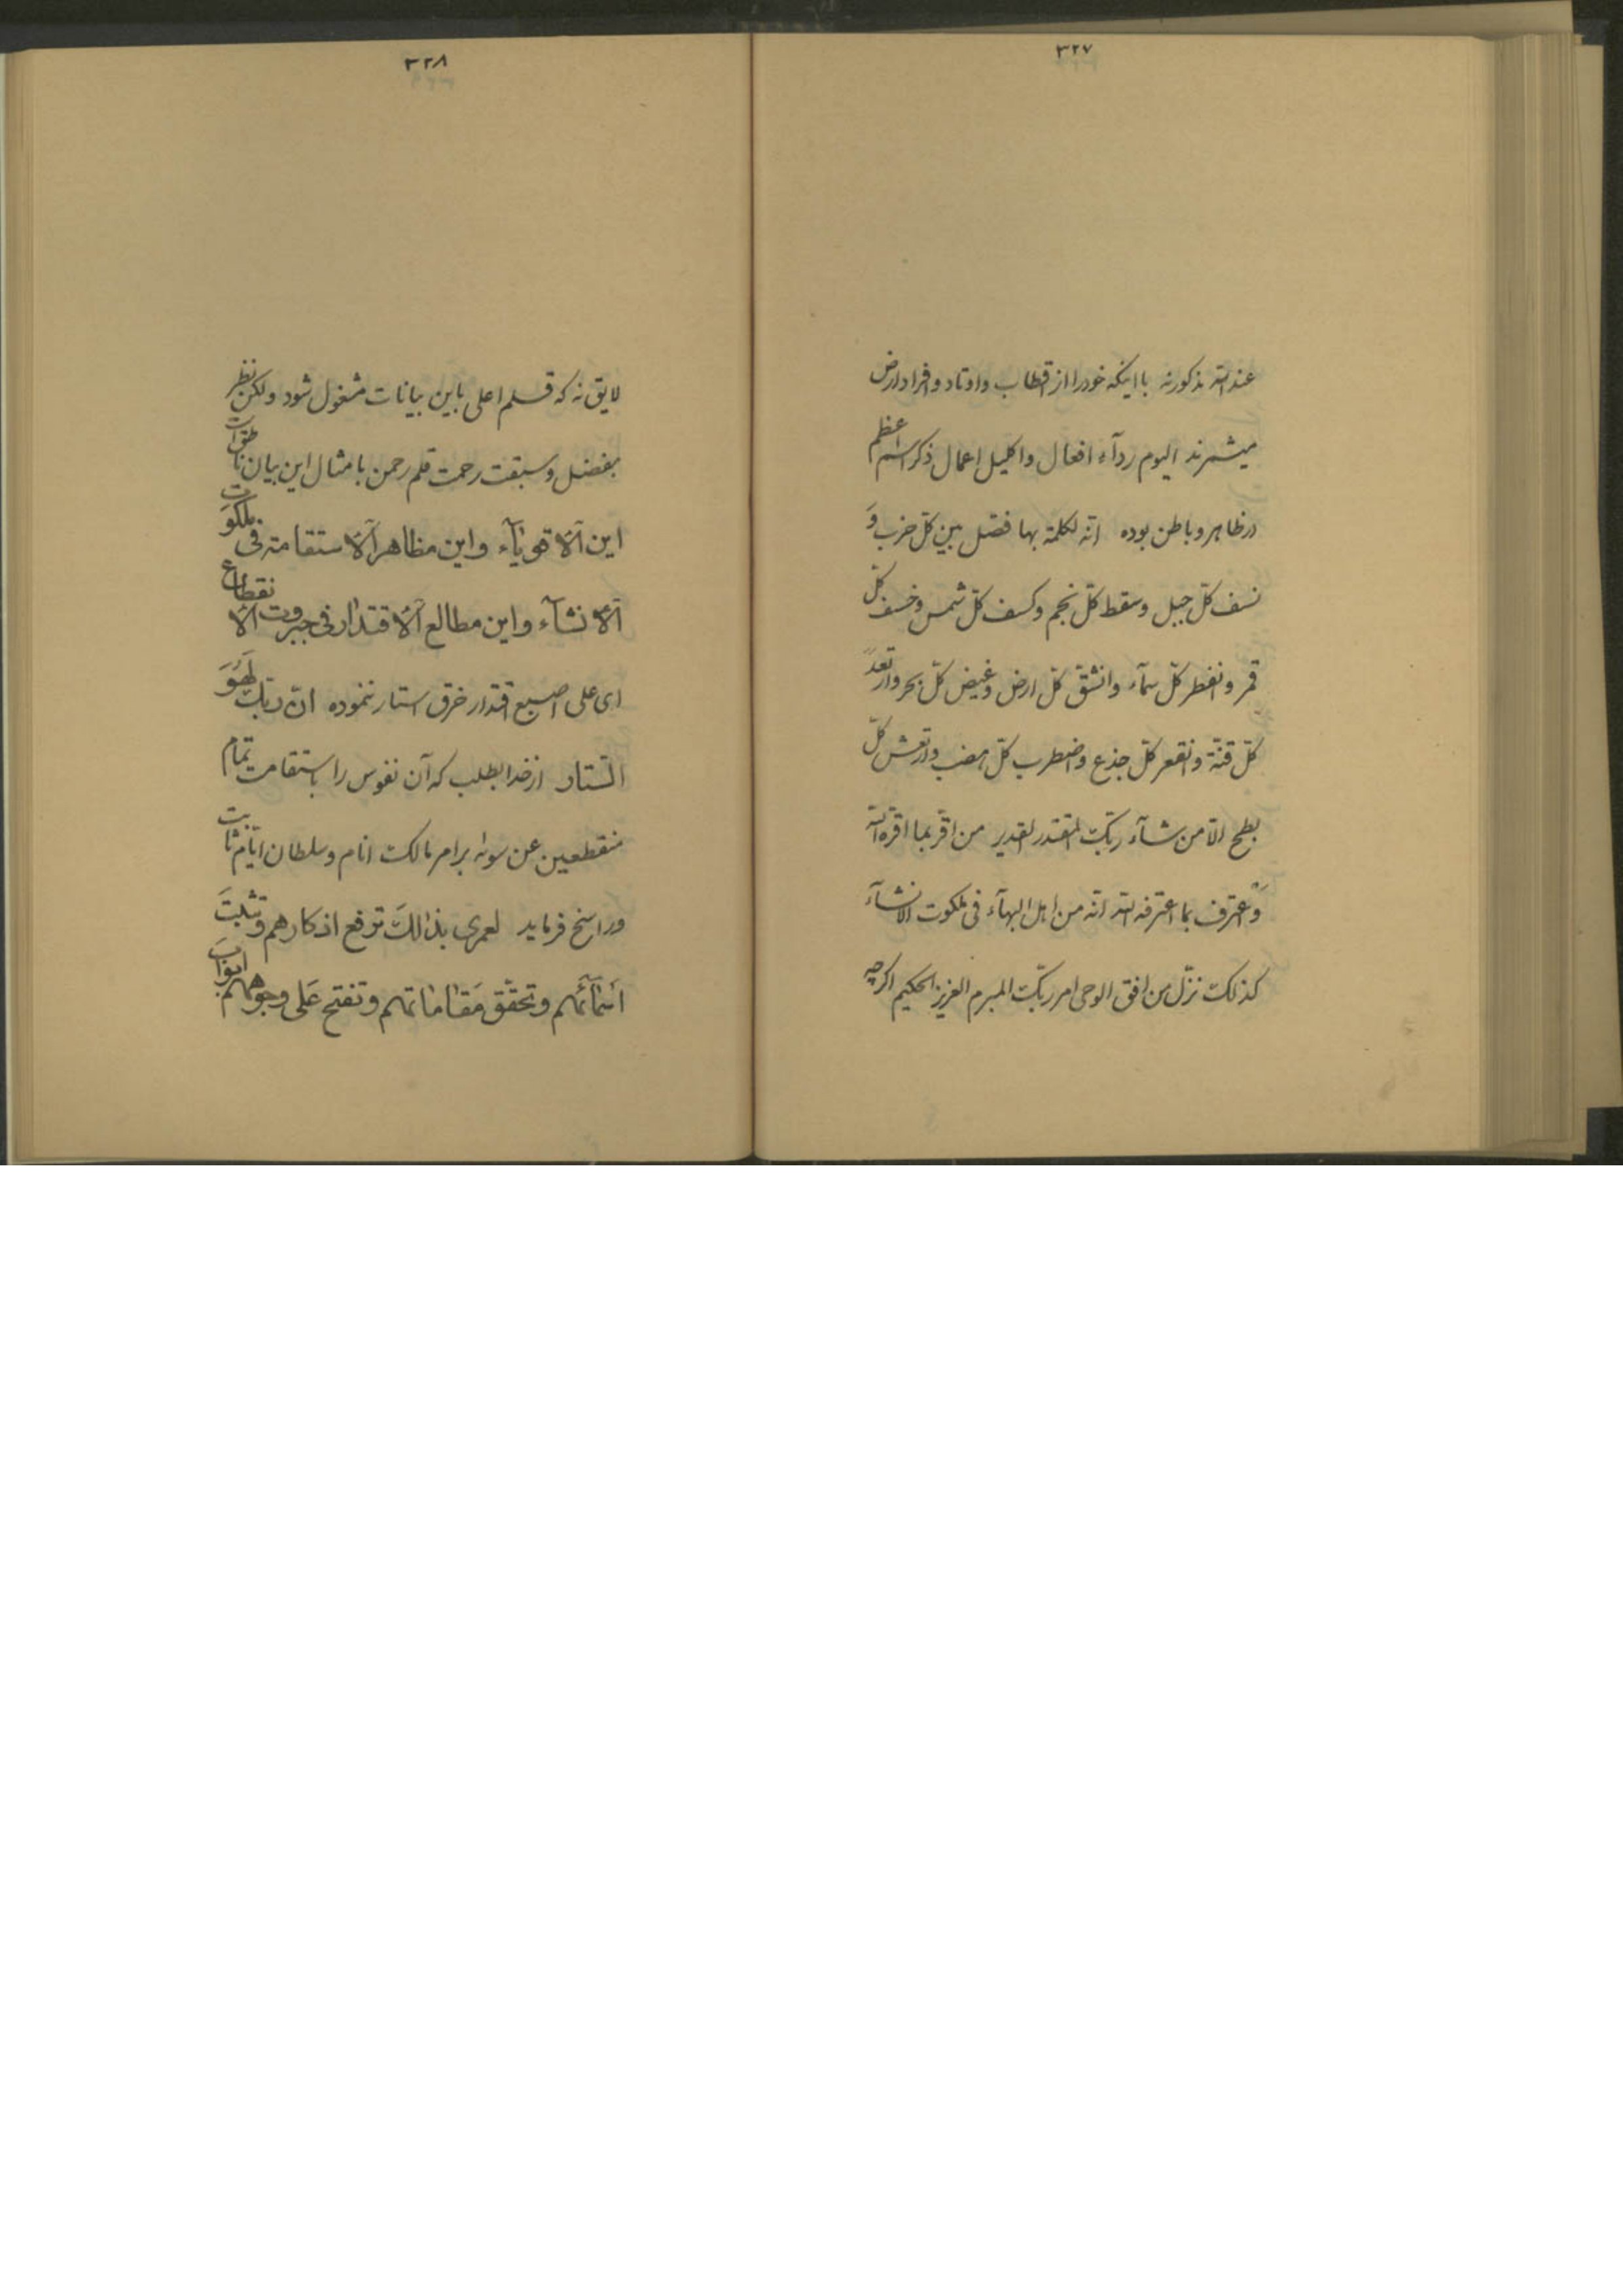 ۳۲۷
عند الله مذکور نه با اینکه خود را از اقطاب و اوتاد و افراد ارض
میشمرند الیوم ردآء افعال و اکلیل اعمال ذکر اسم اعظم
در ظاهر و باطن بوده انّه لکلمة بها فصّل بین کلّ حزب وَ
نسف کلّ جبل و سقط کلّ نجم و کسف کلّ شمس و خسف کلّ
قمر و انفطر کلّ سمآء و انشقّ کلّ ارض و غیض کلّ بحر و ارتعدّ
کلّ قنّة و انقعر کلّ جذع و اضطرب کلّ هضب و ارتعش کلّ
بطح الّا من شآء ربّک المقتدر القدیر من اقرّ بما اقرّه الله
وَ اعترف بما اعترفه الله انّه من اهل البهآء فی ملکوت الانشآء
کذلک نزّل من افق الوحی امر ربّک المبرم العزیز الحکیم اگرچه
۳۲۸
لایق نه که قلم اعلی باین بیانات مشغول شود ولکن نظر
بفضل و سبقت رحمت قلم رحمن بامثال این بیان ناطق
این الاقویآء و این مظاهر الاستقامة فی ملکوت
الانشآء و این مطالع الاقتدار فی جبروت الانقطاع
ای علی اصبع اقتدار خرق استار ننموده انّ ربّک لَهُوَ
الستّار از خدا بطلب که آن نفوس را باستقامت تمام
منقطعین عن سوٰه بر امر مالک انام و سلطان ایّام ثابت
و راسخ فرماید لعمری بذالکَ ترفع اذکارهم و تثبت
اسمآئهم و تحقّق مقاماتهم و تفتح عَلی وجوههم ابواب